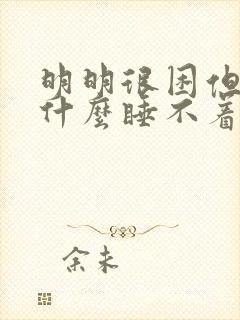 明明很困但
什麼睡不着
余未